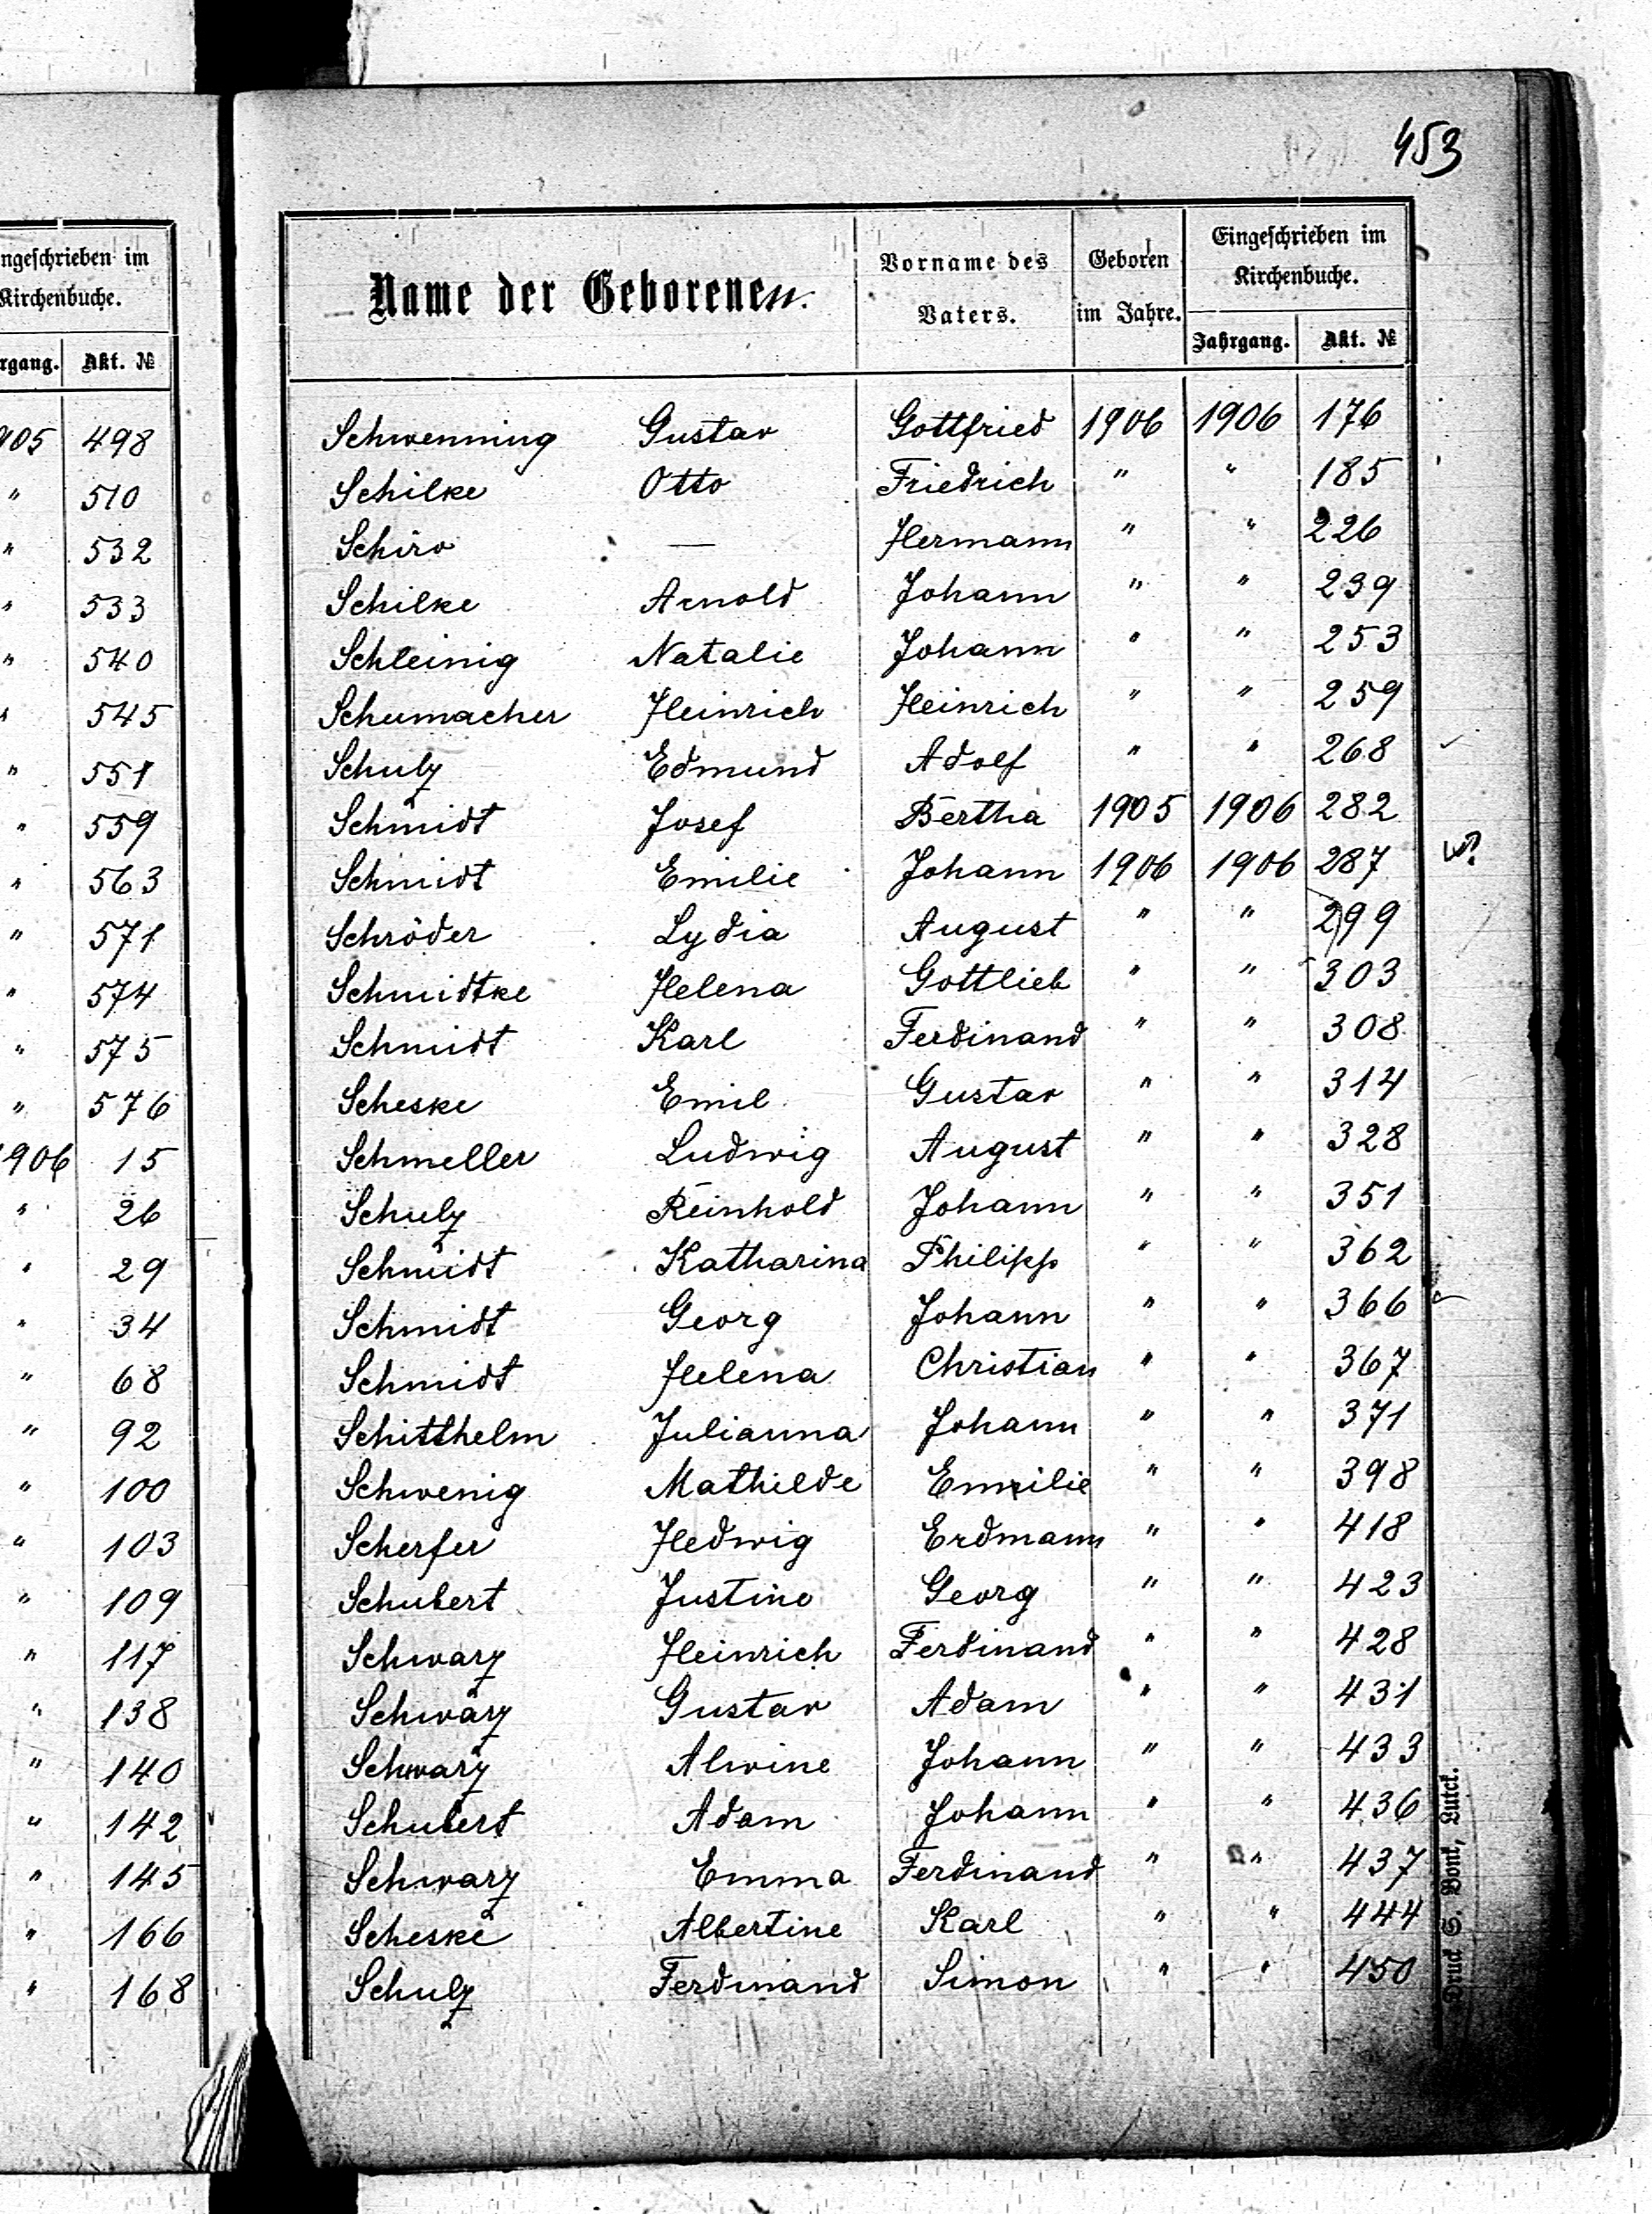 453
ngeschrieben im
Kirchenbuche.
rgang. Akt. №
905 498
" 510
" 532
" 533
" 540
" 545
" 551
" 559
" 563
" 571
" 574
" 575
" 576
1906 15
" 26
" 29
" 34
" 68
" 92
" 100
" 103
" 109
" 117
" 138
" 140
" 142
" 145
" 166
" 168
Name der Geborenen. Vorname des Vaters. Geboren im Jahre. Eingeschrieben im Kirchenbuche.
Jahrgang. Akt. №
Schwenning Gustav Gottfried 1906 1906 176
Schilke Otto Friedrich " " 185
Schiro — Hermann " " 226
Schilke Arnold Johann " " 239
Schleinig Natalie Johann " " 253
Schumacher Heinrich Heinrich " " 259
Schulz Edmund Adolf " " 268
Schmidt Josef Bertha 1905 1906 282
Schmidt Emilie Johann 1906 1906 287
Schröder Lydia August " " 299
Schmidtke Helena Gottlieb " " 303
Schmidt Karl Ferdinand " " 308
Scheske Emil Gustav " " 314
Schmeller Ludwig August " " 328
Schulz Reinhold Johann " " 351
Schmidt Katharina Philipp " " 362
Schmidt Georg Johann " " 366
Schmidt Helena Christian " " 367
Schitthelm Julianna Johann " " 371
Schwenig Mathilde Emilie " " 398
Scherfer Hedwig Erdmann " " 418
Schubert Justine Georg " " 423
Schwarz Heinrich Ferdinand " " 428
Schwarz Gustav Adam " " 431
Schwarz Alwine Johann " " 433
Schubert Adam Johann " " 436
Schwarz Emma Ferdinand " " 437
Scheske Albertine Karl " " 444
Schulz Ferdinand Simon " " 450
Druck S. Bont, Lutck.